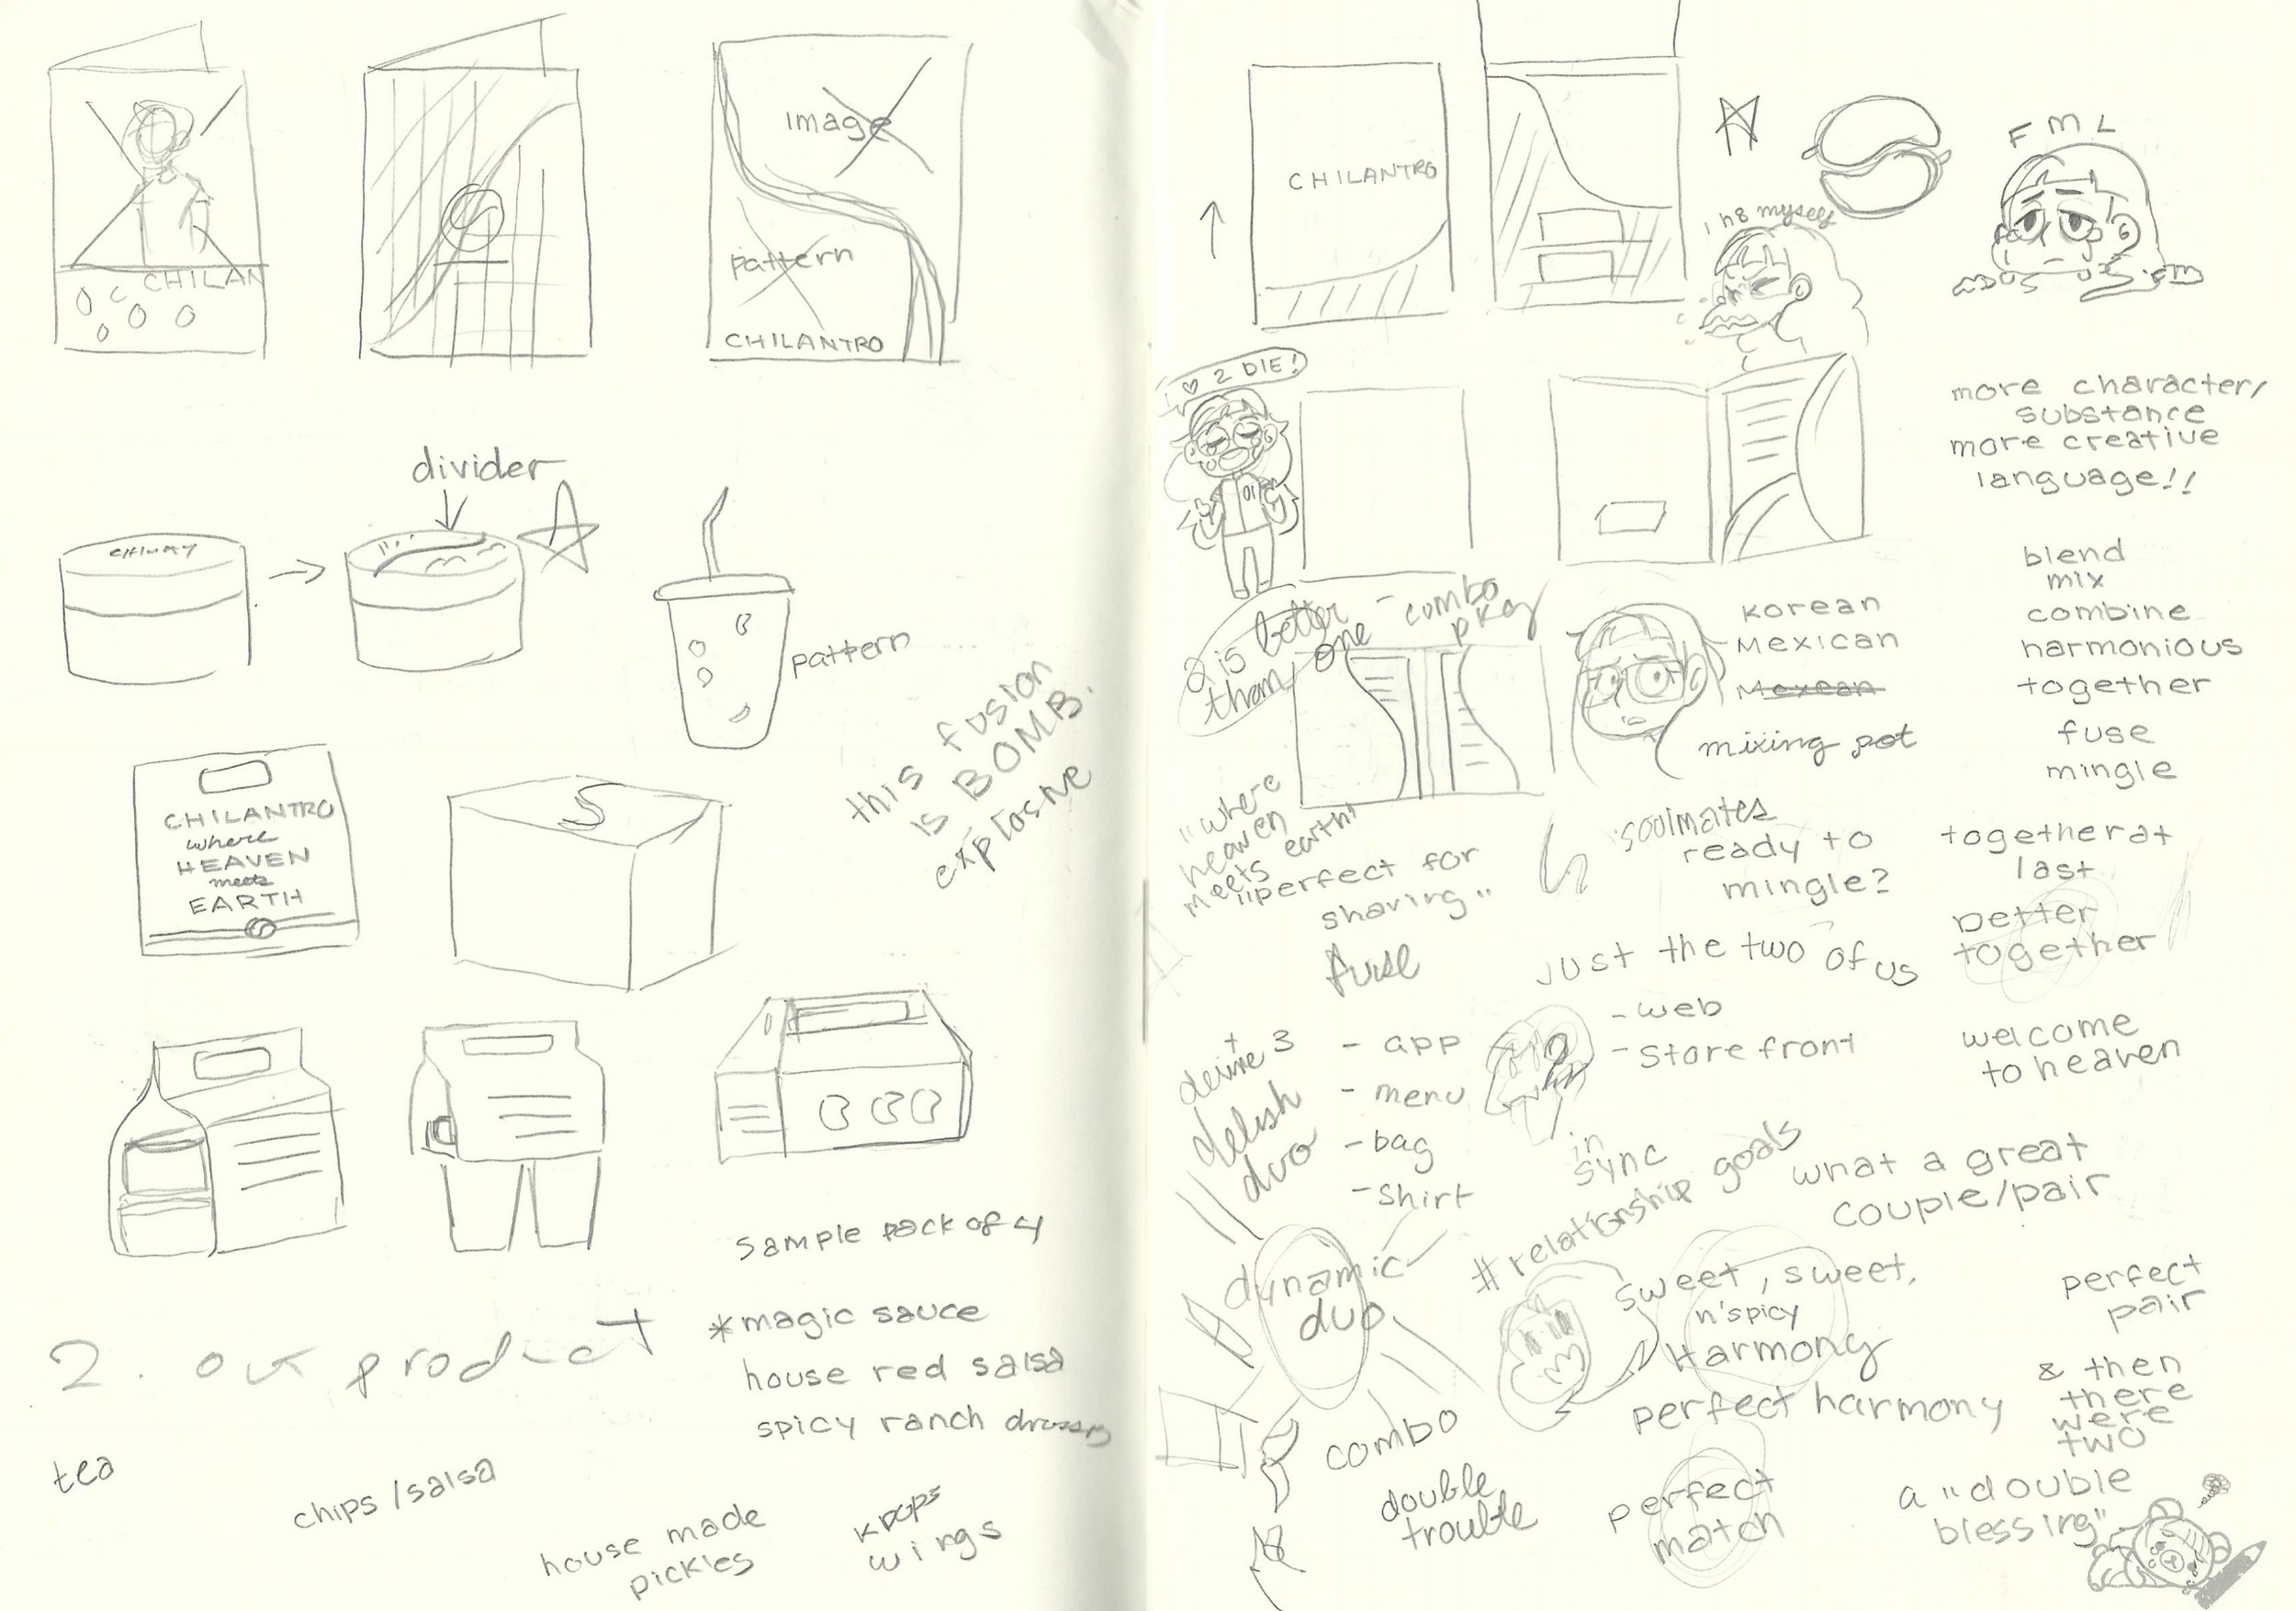 CHILAN
image
pattern
CHILANTRO
divider
pattern
this fusion
is BOMB.
explosive
CHILANTRO
where
HEAVEN
meets
EARTH
sample pack of 4
2. our product
*magic sauce
house red salsa
spicy ranch
tea
chips/salsa
house made
pickles
kpops
wings
CHILANTRO
FML
I h8 myself
I ♡ 2 DIE!
01
more character/
substance
more creative
language!!
2 is better
than one
- combo
pkg
Korean
Mexican
Mexean
mixing pot
blend
mix
combine
harmonious
together
fuse
mingle
"where
heaven
meets earth"
"perfect for
sharing"
fuse
soulmates
ready to
mingle?
together at
last
better
together
just the two of us
- web
- Store front
welcome
to heaven
- app
- menu
- bag
- shirt
delish
duo
in
sync
#relationship goals
what a great
couple/pair
dynamic
duo
sweet, sweet,
n'spicy
Harmony
perfect harmony
perfect
pair
& then
there
were
two
combo
double
trouble
perfect
match
a "double
blessing"